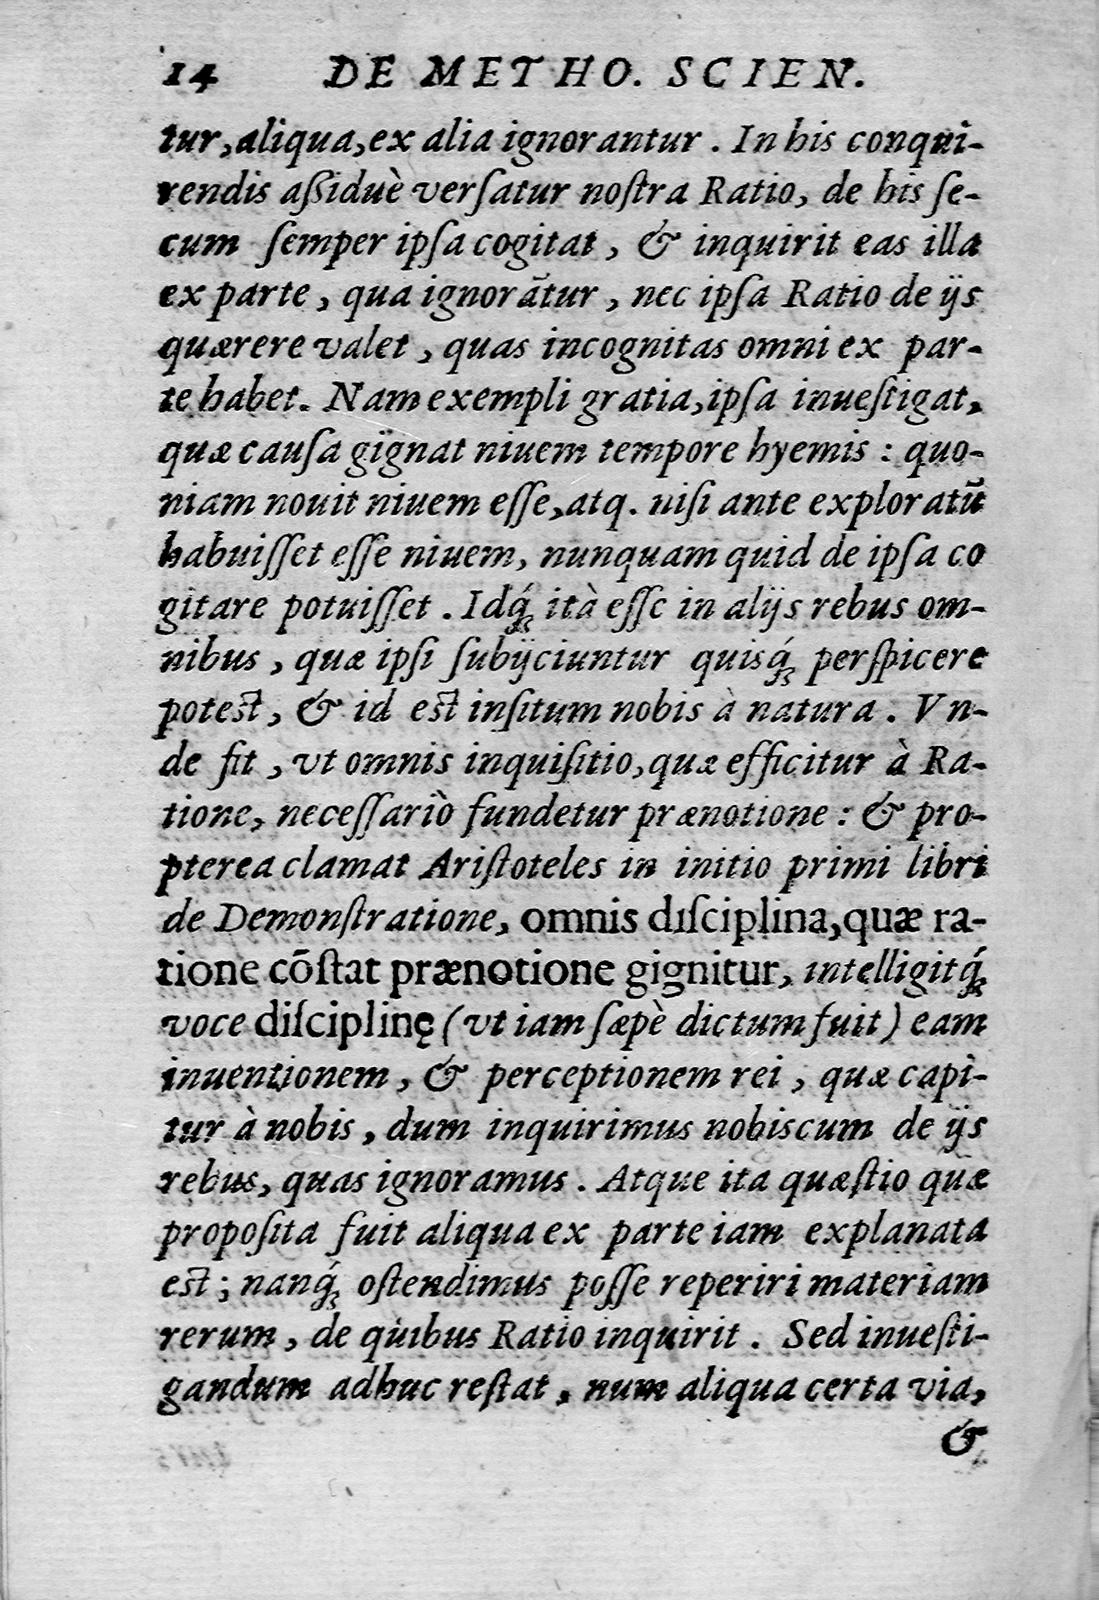 14 DE METHO. SCIEN.
tur, aliqua, ex alia ignorantur. In his conqui-
rendis aßiduè verſatur noſtra Ratio, de his ſe-
cum ſemper ipſa cogitat, & inquirit eas illa
ex parte, qua ignorãtur, nec ipſa Ratio de ijs
quærere valet, quas incognitas omni ex par-
te habet. Nam exempli gratia, ipſa inueſtigat,
quæ cauſa gignat niuem tempore hyemis: quo-
niam nouit niuem eſſe, atq. niſi ante exploratũ
habuiſſet eſſe niuem, nunquam quid de ipſa co
gitare potuiſſet. Idq́; ità eſſe in alijs rebus om-
nibus, quæ ipſi ſubijciuntur quisq́; perſpicere
poteſt, & id eſt inſitum nobis à natura. Vn-
de fit, vt omnis inquiſitio, quæ efficitur à Ra-
tione, neceſſariò fundetur prænotione: & pro-
pterea clamat Ariſtoteles in initio primi libri
de Demonſtratione, omnis diſciplina, quæ ra-
tione cõſtat prænotione gignitur, intelligitq́;
voce diſciplinę (vt iam ſæpè dictum fuit) eam
inuentionem, & perceptionem rei, quæ capi-
tur à nobis, dum inquirimus nobiscum de ijs
rebus, quas ignoramus. Atque ita quæſtio quæ
propoſita fuit aliqua ex parte iam explanata
eſt; nanq́; oſtendimus poſſe reperiri materiam
rerum, de quibus Ratio inquirit. Sed inueſti-
gandum adhuc reſtat, num aliqua certa via,
&